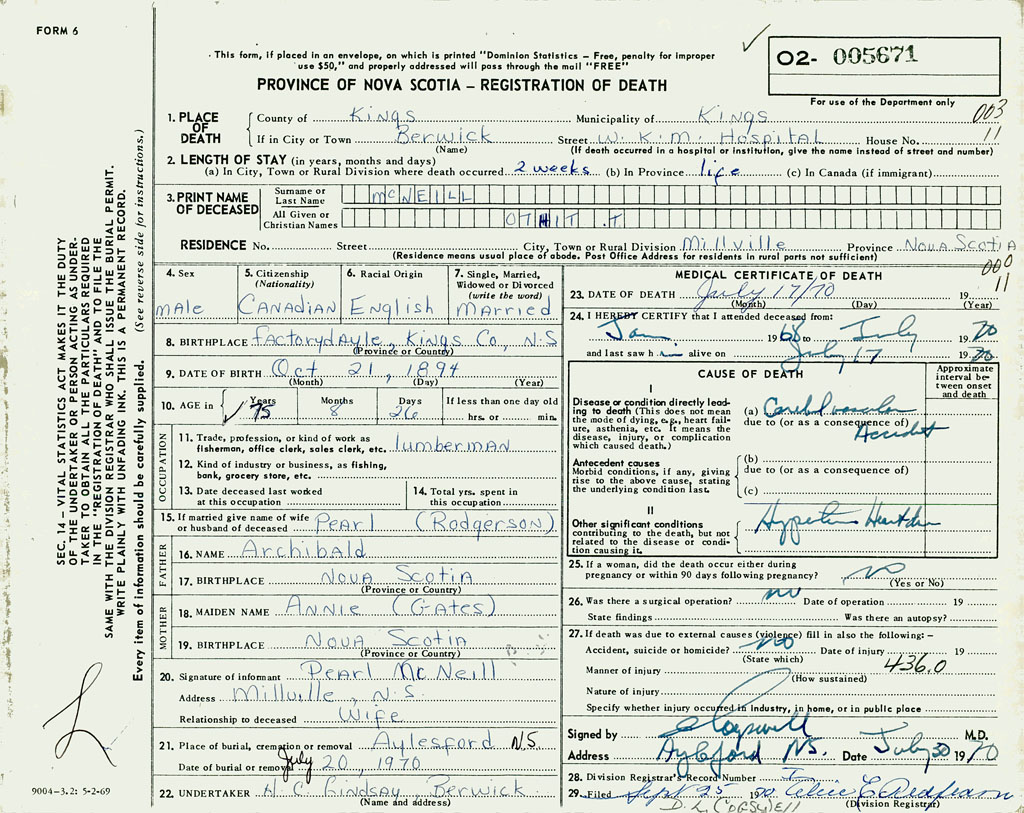 FORM 6
This form, if placed in an envelope, on which is printed "Dominion Statistics - Free, penalty for improper
use $50," and properly addressed will pass through the mail "FREE"
O2- 005671
PROVINCE OF NOVA SCOTIA – REGISTRATION OF DEATH
For use of the Department only
003
11
1. PLACE OF DEATH
County of Kings Municipality of Kings
If in City or Town Berwick Street W. K. M. Hospital House No.
(Name) (If death occurred in a hospital or institution, give the name instead of street and number)
2. LENGTH OF STAY (in years, months and days)
(a) In City, Town or Rural Division where death occurred 2 weeks (b) In Province life (c) In Canada (if immigrant)
3. PRINT NAME OF DECEASED
Surname or Last Name McNEILL
All Given or Christian Names
RESIDENCE No. Street City, Town or Rural Division Millville Province Nova Scotia
(Residence means usual place of abode. Post Office Address for residents in rural parts not sufficient)
000
11
4. Sex
male
5. Citizenship (Nationality)
Canadian
6. Racial Origin
English
7. Single, Married, Widowed or Divorced (write the word)
married
8. BIRTHPLACE Factorydayle, Kings Co, N.S
(Province or Country)
9. DATE OF BIRTH Oct 21, 1894
(Month) (Day) (Year)
10. AGE in Years 75 Months 8 Days 26 If less than one day old
hrs. or min.
OCCUPATION
11. Trade, profession, or kind of work as
fisherman, office clerk, sales clerk, etc. lumberman
12. Kind of industry or business, as fishing,
bank, grocery store, etc.
13. Date deceased last worked
at this occupation
14. Total yrs. spent in
this occupation
15. If married give name of wife
or husband of deceased Pearl (Rodgerson)
FATHER
16. NAME Archibald
17. BIRTHPLACE Nova Scotia
(Province or Country)
MOTHER
18. MAIDEN NAME Annie (Gates)
19. BIRTHPLACE Nova Scotia
(Province or Country)
20. Signature of informant Pearl McNeill
Address Millville, N.S.
Relationship to deceased Wife
21. Place of burial, cremation or removal Aylesford N.S.
Date of burial or removal July 20, 1970
22. UNDERTAKER H. C. Lindsay, Berwick
(Name and address)
MEDICAL CERTIFICATE OF DEATH
23. DATE OF DEATH July 17/70 19
(Month) (Day) (Year)
24. I HEREBY CERTIFY that I attended deceased from:
Jan. 1968 to July 1970
and last saw him alive on July 17 1970
CAUSE OF DEATH
Approximate interval between onset and death
I
Disease or condition directly leading
to death (This does not mean
the mode of dying, e.g., heart failure,
asthenia, etc. It means the
disease, injury, or complication
which caused death.)
(a) Cerebrovascular
due to (or as a consequence of)
Accident
Antecedent causes
Morbid conditions, if any, giving
rise to the above cause, stating
the underlying condition last.
(b)
due to (or as a consequence of)
(c)
II
Other significant conditions
contributing to the death, but not
related to the disease or condition
causing it.
25. If a woman, did the death occur either during
pregnancy or within 90 days following pregnancy? no
(Yes or No)
26. Was there a surgical operation? no Date of operation 19
State findings Was there an autopsy?
27. If death was due to external causes (violence) fill in also the following: –
Accident, suicide or homicide? no Date of injury 19
(State which)
Manner of injury 436.0
(How sustained)
Nature of injury
Specify whether injury occurred in industry, in home, or in public place
Signed by M.D.
Address Aylesford N.S. Date July 30 1970
28. Division Registrar's Record Number
29. Filed Sept 25 1970
(Division Registrar)
SEC. 14 – VITAL STATISTICS ACT MAKES IT THE DUTY
OF THE UNDERTAKER OR PERSON ACTING AS UNDER-
TAKER TO OBTAIN ALL THE PARTICULARS REQUIRED
IN THE "REGISTRATION OF DEATH" AND TO FILE THE
SAME WITH THE DIVISION REGISTRAR WHO SHALL ISSUE THE BURIAL PERMIT.
WRITE PLAINLY WITH UNFADING INK. THIS IS A PERMANENT RECORD.
Every item of information should be carefully supplied. (See reverse side for instructions.)
9004–3.2: 5-2-69